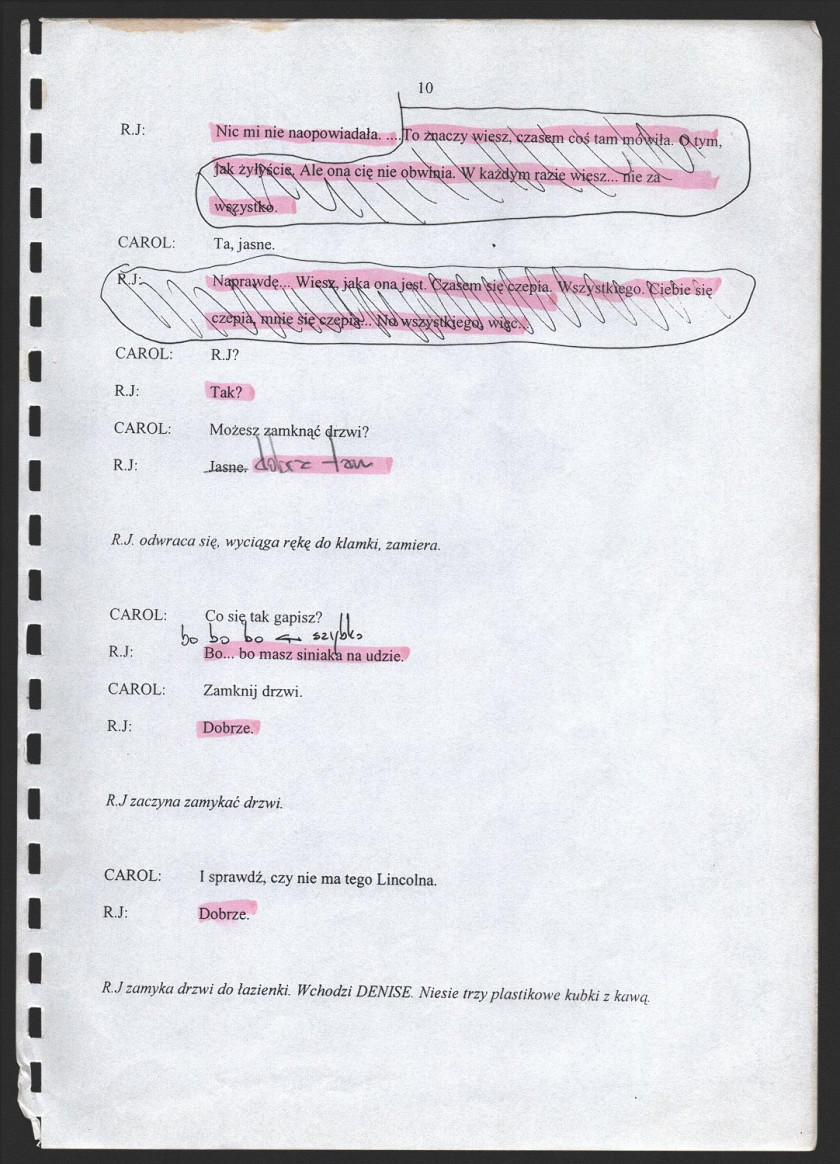 10
R.J: Nic mi nie naopowiadała. ... To znaczy wiesz, czasem coś tam mówiła. O tym,
jak żyłyście. Ale ona cię nie obwinia. W każdym razie wiesz... nie za
wszystko.
CAROL: Ta, jasne.
R.J: Naprawdę... Wiesz, jaka ona jest. Czasem się czepia. Wszystkiego. Ciebie się
czepia, mnie się czepia... No wszystkiego, więc...
CAROL: R.J?
R.J: Tak?
CAROL: Możesz zamknąć drzwi?
R.J: Jasne. dobrze
R.J. odwraca się, wyciąga rękę do klamki, zamiera.
CAROL: Co się tak gapisz?
bo bo bo ← szybko
R.J: Bo... bo masz siniaka na udzie.
CAROL: Zamknij drzwi.
R.J: Dobrze.
R.J zaczyna zamykać drzwi.
CAROL: I sprawdź, czy nie ma tego Lincolna.
R.J: Dobrze.
R.J zamyka drzwi do łazienki. Wchodzi DENISE. Niesie trzy plastikowe kubki z kawą.